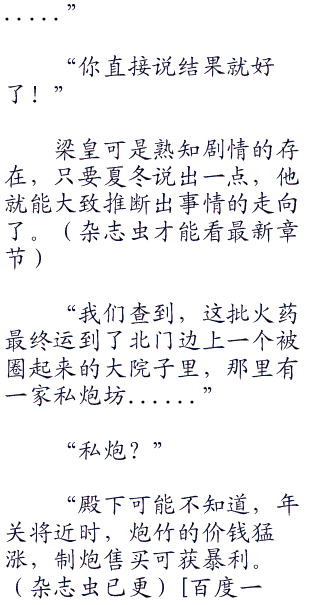 .....”
“你直接说结果就好
了！”
梁皇可是熟知剧情的存
在，只要夏冬说出一点，他
就能大致推断出事情的走向
了。（杂志虫才能看最新章
节）
“我们查到，这批火药
最终运到了北门边上一个被
圈起来的大院子里，那里有
一家私炮坊......”
“私炮？”
“殿下可能不知道，年
关将近时，炮竹的价钱猛
涨，制炮售买可获暴利。
（杂志虫已更）[百度一